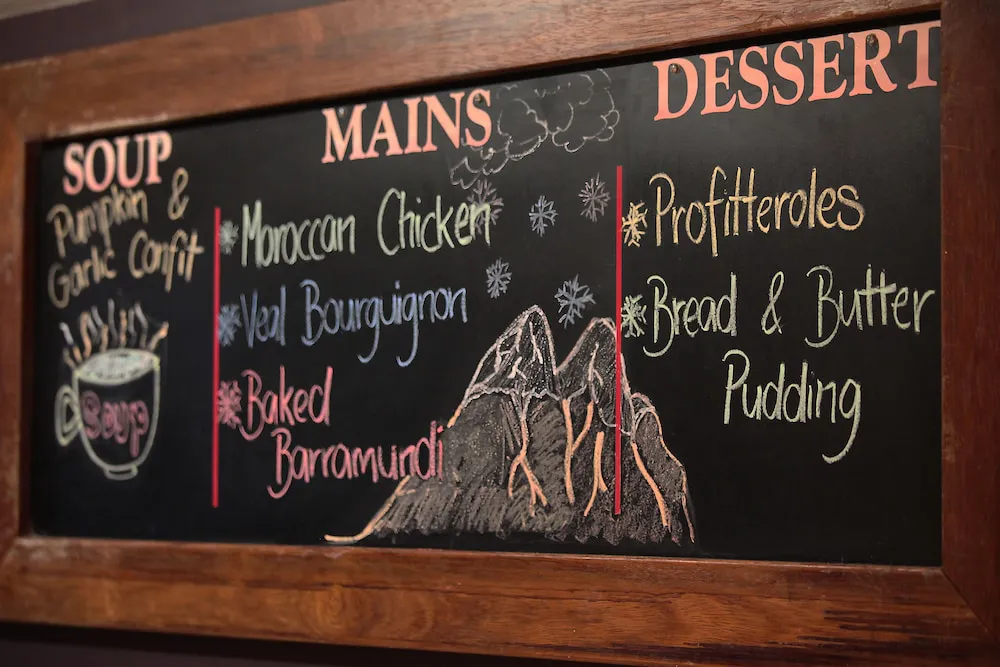 SOUP
Pumpkin &
Garlic Confit
Soup
MAINS
Moroccan Chicken
Veal Bourguignon
Baked
Barramundi
DESSERT
Profitteroles
Bread & Butter
Pudding